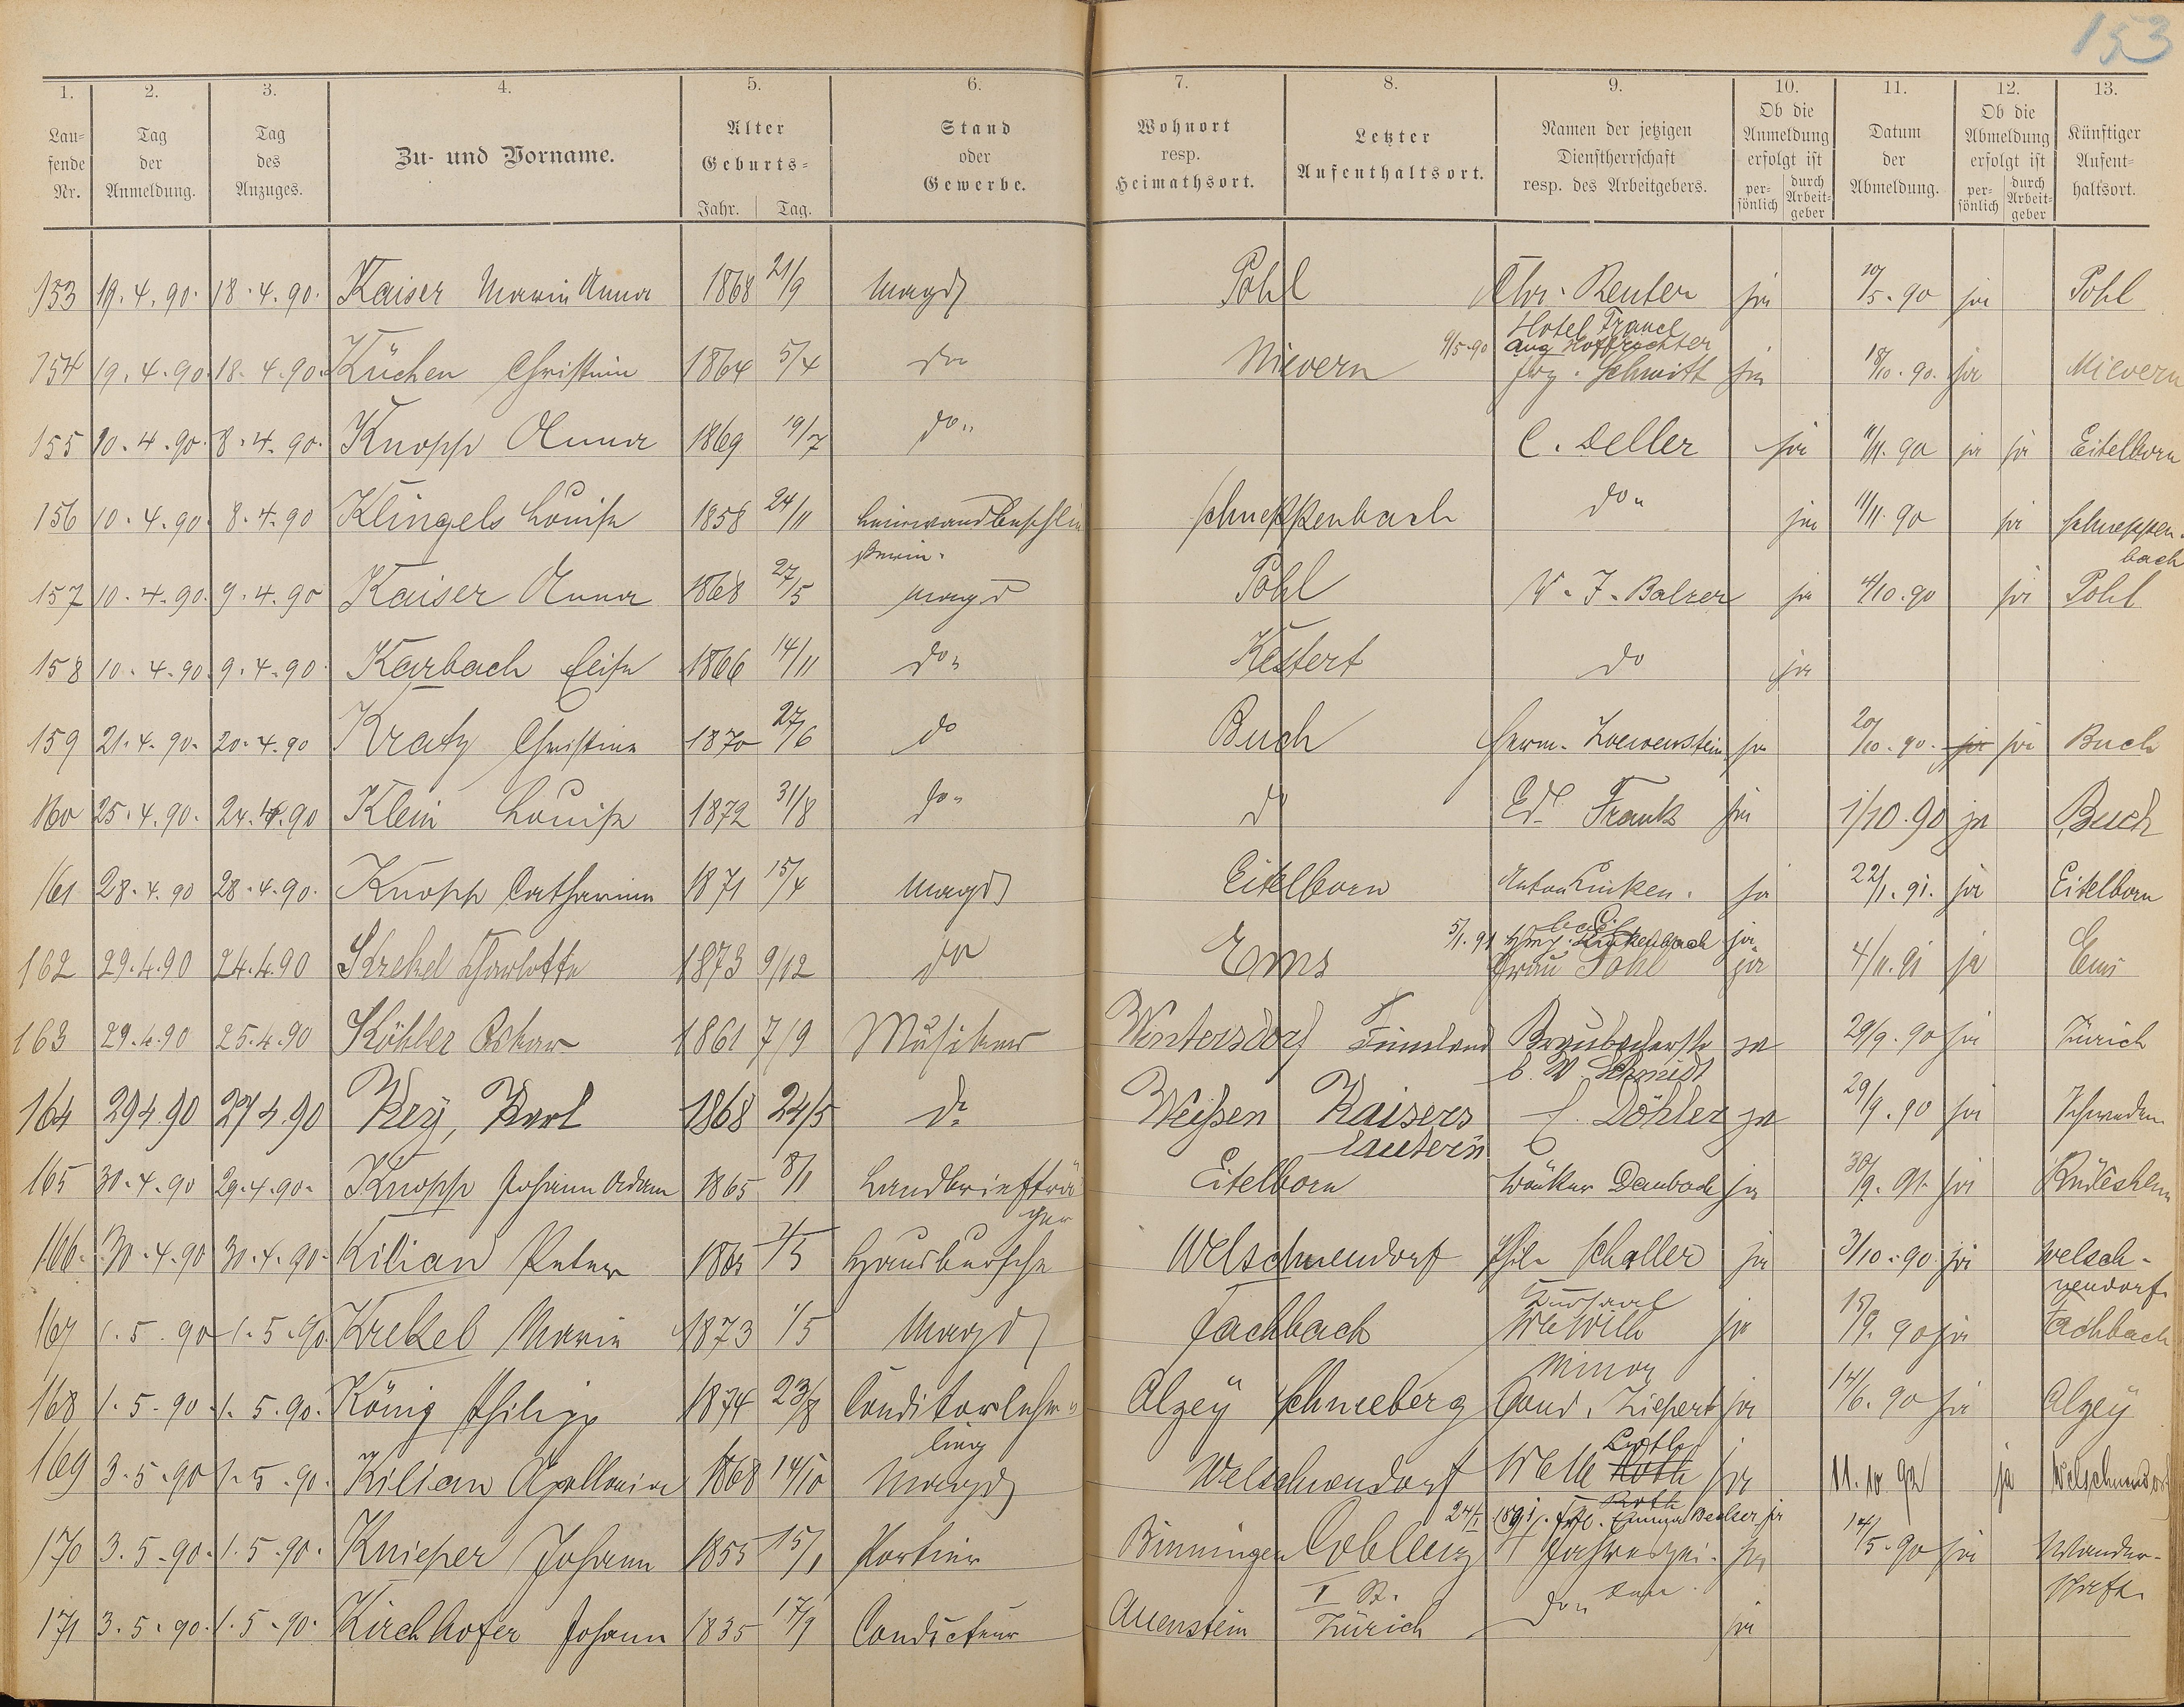 153
1. 2. 3. 4. 5. 6. 7. 8. 9. 10. 11. 12. 13.
Laufende Nr. Tag der Anmeldung. Tag des Anzuges. Zu- und Vorname. Alter Geburts- Jahr. Tag. Stand oder Gewerbe. Wohnort resp. Heimathsort. Letzter Aufenthaltsort. Namen der jetzigen Dienstherrschaft resp. des Arbeitgebers. Ob die Anmeldung erfolgt ist persönlich durch Arbeitgeber Datum der Abmeldung. Ob die Abmeldung erfolgt ist persönlich durch Arbeitgeber Künftiger Aufenthaltsort.
153 19.4.90. 18.4.90. Kaiser Maria Anna 1868 21/9 Magd Pohl Chr. Reuter ja 10/5.90 ja Pohl
9/5.90 Hotel Franel
Aug Hoffrichter
154 19.4.90. 18.4.90. Küchen Christine 1864 5/4 do Nievern Schmitt ja 18/10.90. ja Nievern
155 10.4.90. 8.4.90. Knopp Anna 1869 19/7 do C. Deller ja 11/11.90 ja ja Eitelborn
156 10.4.90. 8.4.90 Klingels Louise 1858 24/11 Schneppenbach do ja 11/11.90 ja Schneppen-
bach
157 10.4.90. 9.4.90 Kaiser Anna 1868 27/5 Magd Pohl W. J. Balzer ja 4/10.90 ja Pohl
158 10.4.90. 9.4.90. Karbach Elise 1866 14/11 do Kestert do ja
159 21.4.90. 20.4.90 Kratz Christine 1870 27/6 do Buch Herm. Loewenstein ja 20/10.90. ja ja Buch
160 25.4.90. 24.4.90 Klein Louise 1872 31/8 do d Ed. Frank ja 1/10.90 ja Buch
161 28.4.90 28.4.90. Knopp Catharina 1871 15/4 Magd Eitelborn Anton Linken. ja 22/1.91. ja Eitelborn
5/1.91 ja
162 29.4.90 24.4.90 Krekel Charlotte 1873 9/12 do Ems Frau Pohl ja 4/11.91 ja Ems
163 29.4.90 25.4.90 Köhler Oskar 1861 7/9 Musiker Wintersdorf Finnland Braubacherstr ja 29/9.90 ja Zürich
b. W. Schmidt
164 29.4.90 27.4.90 Key, Karl 1868 24/5 do Weissen Kaisers Döhler ja 29/9.90 ja Schweden
lautern
165 30.4.90 29.4.90. Knopp Johann Adam 1865 8/1 Landbriefträ Eitelborn Daubach ja 30/9.91. ja Rüdesheim
ger
166. 30.4.90 30.4.90. Kilian Peter 1865 /5 Hausbursche Welschnendorf Phil. Schaller ja 3/10.90 ja Welsch-
nendorf.
Kursaal
167 1.5.90 1.5.90. Krekel Maria 1873 1/5 Magd Fachbach ja 15/9.90 ja Fachbach
168 1.5.90. 1.5.90. König Philipp 1874 23/8 Conditorlehr- Alzey Schneeberg Cond. Ziepert ja 14/6.90 ja Alzey
ling
169 3.5.90 1.5.90. Kilian Apollonia 1868 14/10 Magd Welschnendorf Roth ja 11.10 92 ja Welschnendorf
24/1 1891. Frl. Emma Becker ja
170 3.5.90. 1.5.90. Knieper Johann 1855 15/1 Portier Binningen Coblenz ja 14/5.90 ja Wander-
schaft.
171 3.5.90. 1.5.90. Kirchhofer Johann 1835 17/9 Conducteur Auenstein Zürich do ja